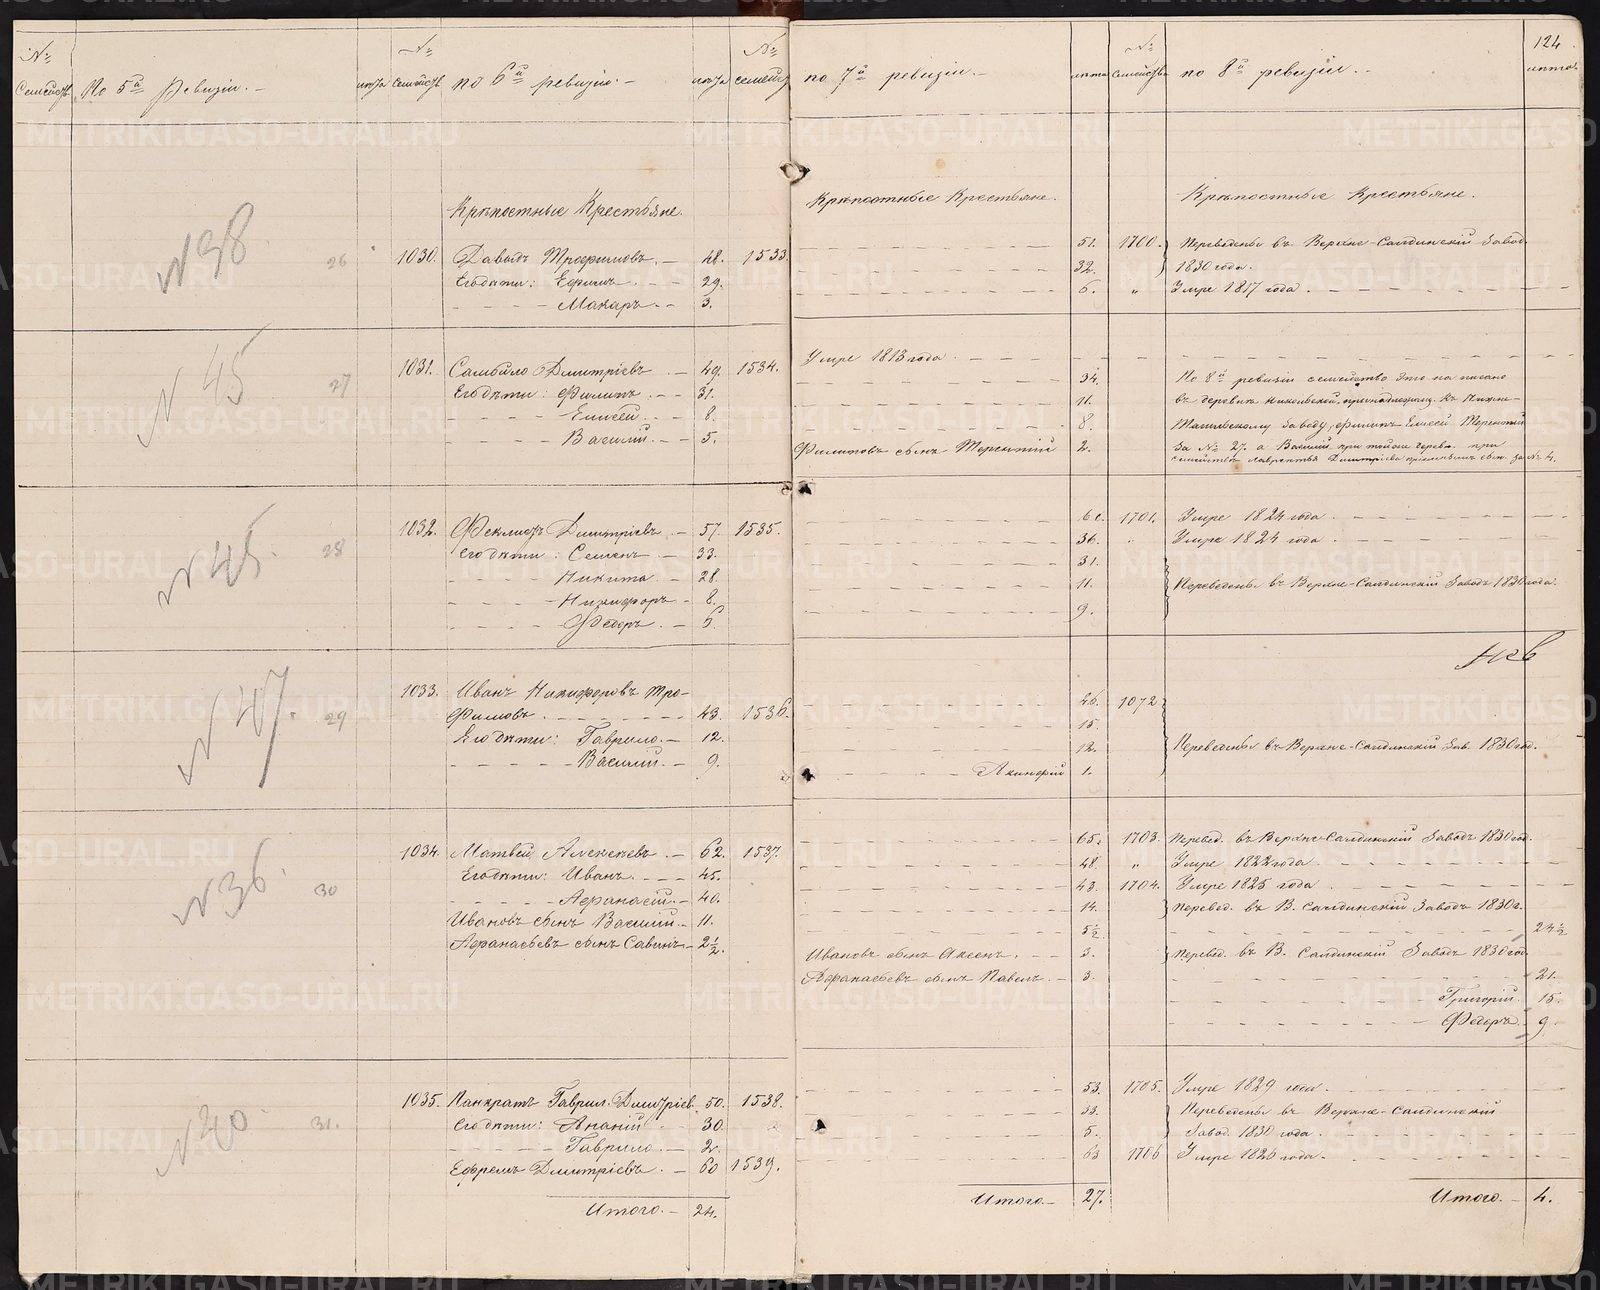 № Семейств. По 5й Ревизіи. - лѣта № Семейств по 6й ревизіи. - лѣта № семейств по 7й ревизіи. - лѣта № Семейства по 8й ревизіи. - 124 лѣта
Крѣпостные Крестьяне. Крѣпостные Крестьяне. Крѣпостные Крестьяне.
№ 38 26 1030. Давыдъ Трофимовъ. - 48. 1533. 51. 1700. Переведены въ Верхне-Салдинскій Завод.
Его дѣти: Ефимъ. - - 29. 32. 1830 года.
Макаръ. - - 3. 6. " Умре 1817 года.
№ 45 27 1031. Самойло Дмитріевъ. - 49. 1534. Умре 1813 года.
Его дѣти: Филипъ. - - 31. 34. По 8й ревизіи семейство это написано
Елисей. - - 8. 11. въ деревни Никольской, принадлежащ. къ Нижне-
Василій. - - 5. 8. Тагильскому Заводу, Филипъ Елисей Терентій
Филиповъ сынъ Терентій 2. За № 27. а Василій при той же дерев. при
семействѣ Лаврентья Дмитріева сын. за № 4.
№ 45. 28 1032. Феклистъ Дмитріевъ. - 57. 1535. 1701. Умре 1824 года.
Его дѣти: Семенъ. - 33. 36. Умре 1824 года.
Никита. - 28. 31.
Никифоръ - 8. 11. Переведены въ Верхне-Салдинскій Заводъ 1830 года.
Федоръ. - 6. 9.
№ 47. 29 1033. Иванъ Никифоровъ Тро-
фимовъ. 43. 1536. 46. 1072
Его дѣти: Гаврило. - 12. 15.
Василій. - 9. 12. Переведены въ Верхне-Салдинскій Зав. 1830 год.
Акинфій 1.
№ 36. 30 1034. Матвей Алексѣевъ. - 62. 1537. 65. 1703. Перевед. въ Верхне-Салдинскій Заводъ 1830 год.
Его дѣти: Иванъ. - 45. 48. " Умре 1822 года.
Афанасій. - 40. 43. 1704. Умре 1825 года
Ивановъ сынъ Василій. - 11. 14. Перевед. въ В. Салдинскій Заводъ 1830 г.
Афанасьевъ сынъ Савинъ - 2½. 5½. 24½
Ивановъ сынъ Аксенъ. - 3. Перевед. въ В. Салдинскій Заводъ 1830 год.
Афанасьевъ сынъ Павелъ. - 3. 21.
Григорій. 15.
Федоръ. 9.
№ 40 31. 1035. Панкратъ Гаврил. Дмитріев. 50. 1538. 53. 1705. Умре 1829 года.
Его дѣти: Ананій 30. 33. Переведены въ Верхне-Салдинскій
Гаврило. - 2. 5. Завод. 1830 года.
Ефремъ Дмитріевъ. - 60 1539. 63 1706 Умре 1826 года.
Итого. - 24. Итого. - 27. Итого. - 4.
METRIKI.GASO-URAL.RU